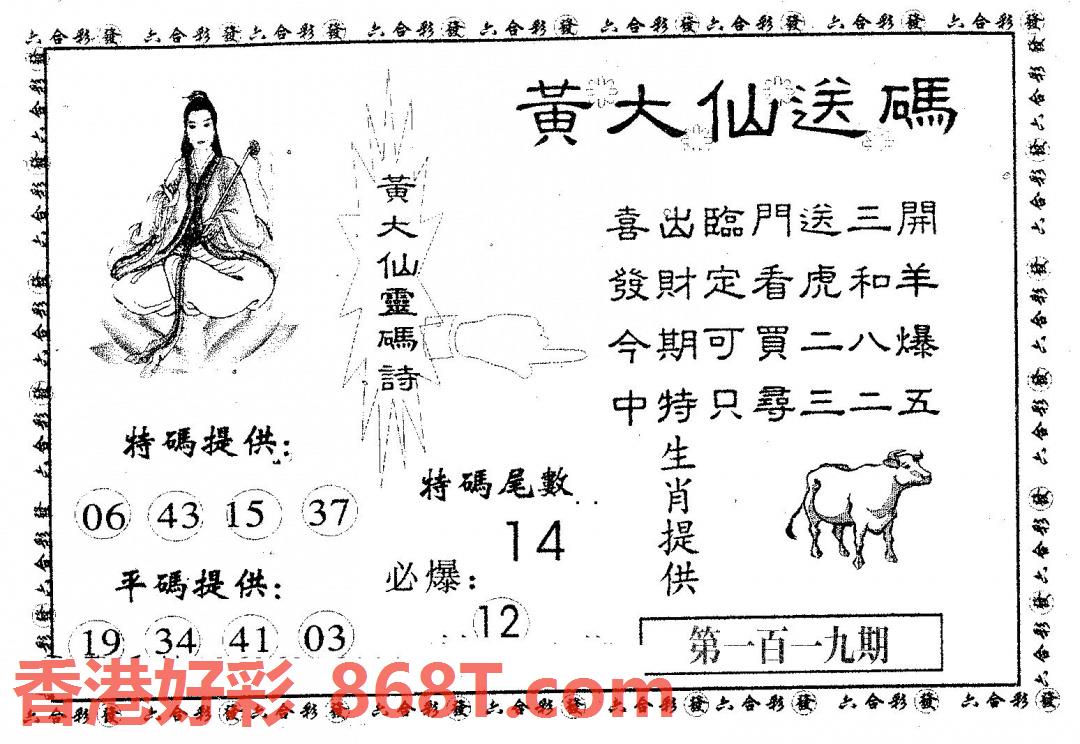 六合彩發 六合彩發六合彩發 六合彩發六合彩發 六合彩發六合彩發 六合彩發 六合彩發
黃大仙送碼
黃大仙靈碼詩
喜出臨門送三開
發財定看虎和羊
今期可買二八爆
中特只尋三二五
特碼提供:
06 43 15 37
平碼提供:
19 34 41 03
特碼尾數
14
必爆:
12
生肖提供
第一百一九期
香港好彩 868T.com
六合彩發 六合彩發六合彩發 六合彩發六合彩發 六合彩發六合彩發 六合彩發 六合彩發